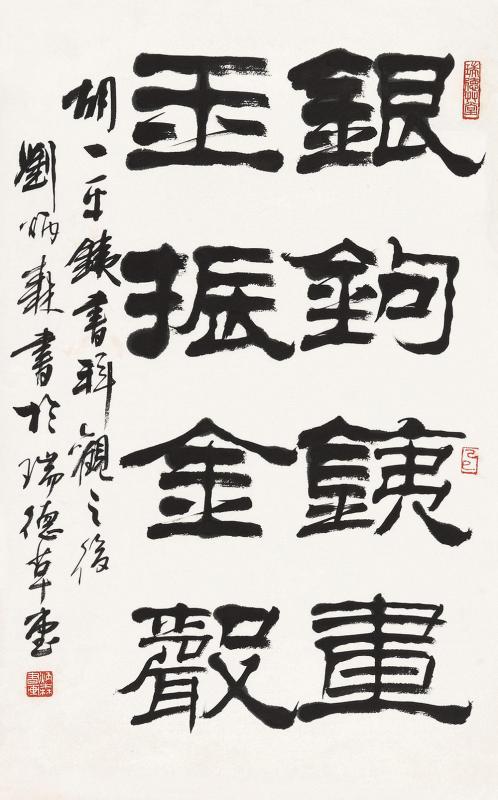 銀鉤銕畫
玉振金聲
胡一平銕書拜觀之後
劉炳森書於瑞德草堂